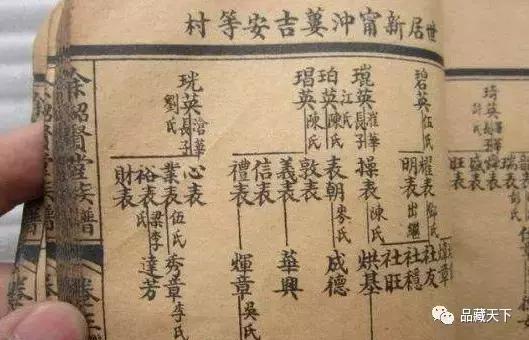 世居新甯沖蔞吉安等村
盛表
旺表
碧英伍氏
耀表
明表出繼
社友
社穩
社旺
江氏長子
操表陳氏
烘基
珀英陳氏
表朝麥氏
成德
琩英陳氏
敦表
義表
信表
禮表
華興
煇章吳氏
珖英滄華長子
劉氏
心表
業表伍氏
裕表梁氏李
財表
秀章李氏
達芳
余紹賢堂族譜
品藏天下